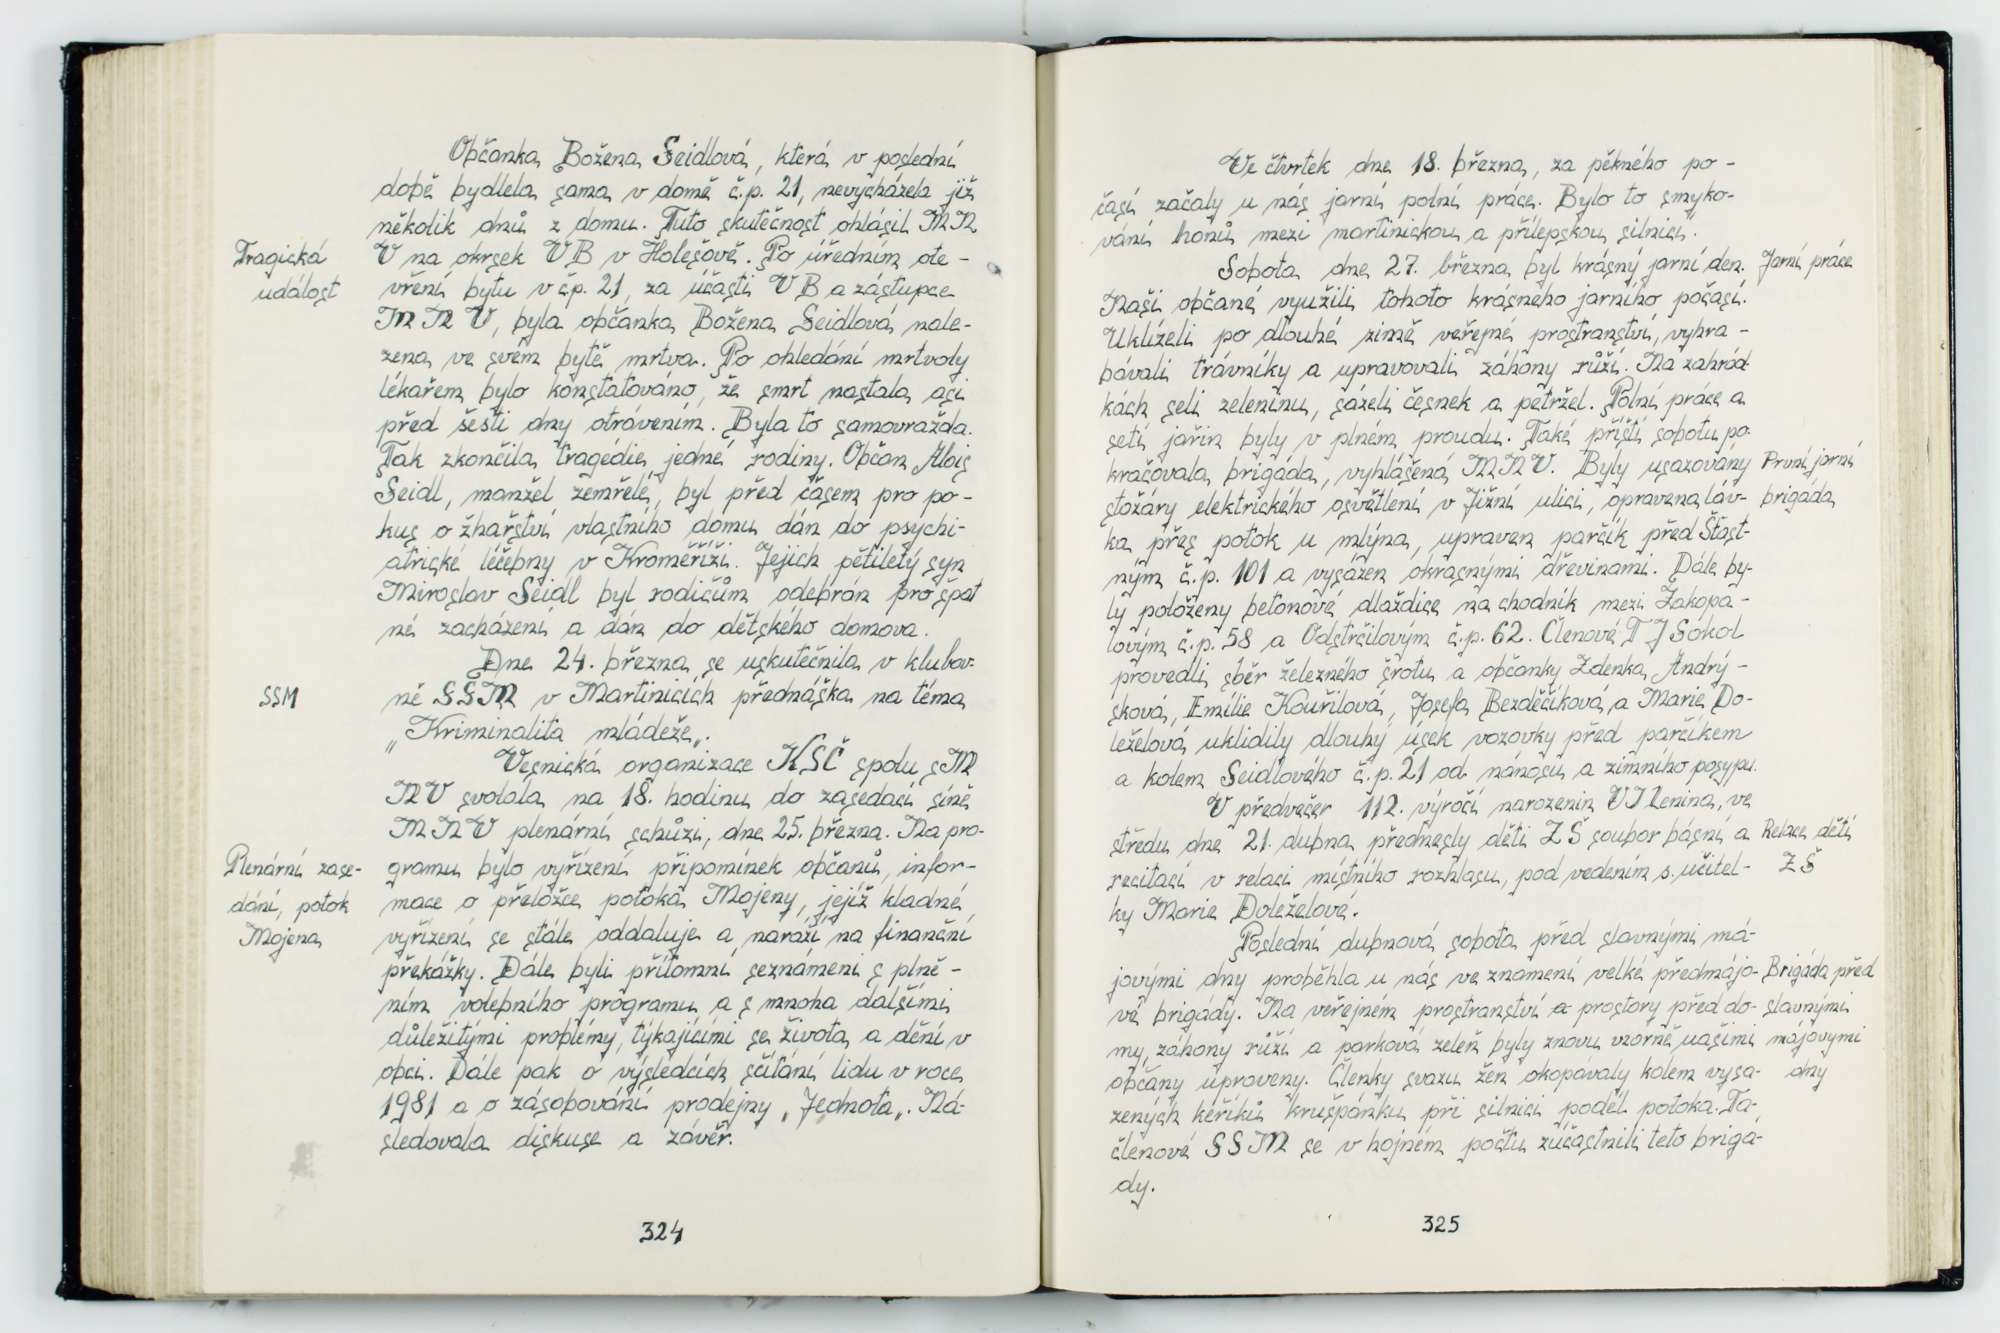 Občanka Božena Seidlová, která v poslední
době bydlela sama v domě č.p. 21, nevycházela již
několik dnů z domu. Tuto skutečnost ohlásil MN
Tragická
událost
V na okrsek VB v Holešově. Po úředním ote-
vření bytu v čp. 21, za účasti VB a zástupce
MNV, byla občanka Božena Seidlová nale-
zena ve svém bytě mrtva. Po ohledání mrtvoly
lékařem bylo konstatováno, že smrt nastala asi
před šesti dny otrávením. Byla to samovražda.
Tak zkončila tragédie jedné rodiny. Občan Alois
Seidl, manžel zemřelé, byl před časem pro po-
kus o žhářství vlastního domu dán do psychi-
atrické léčebny v Kroměříži. Jejich pětiletý syn
Miroslav Seidl byl rodičům odebrán pro špat
né zacházení a dán do dětského domova.
Dne 24. března se uskutečnila v klubov-
SSM
ně SSM v Martinicích přednáška na téma
„Kriminalita mládeže„.
Vesnická organizace KSČ spolu s M
NV svolala na 18. hodinu do zasedací síně
MNV plenární schůzi, dne 25. března. Na pro-
Plenární zase-
dání, potok
Mojena
gramu bylo vyřízení připomínek občanů, infor-
mace o přeložce potoka Mojeny, jejíž kladné
vyřízení se stále oddaluje a naráží na finanční
překážky. Dále byli přítomní seznámeni s plně-
ním volebního programu a s mnoha dalšími
důležitými problémy, týkajícími se života a dění v
obci. Dále pak o výsledcích sčítání lidu v roce
1981 a o zásobování prodejny „Jednota„. Ná-
sledovala diskuse a závěr.
324
Ve čtvrtek dne 18. března, za pěkného po-
časí začaly u nás jarní polní práce. Bylo to smyko-
vání honů mezi martinickou a přílepskou silnicí.
Sobota dne 27. března byl krásný jarní den.
Jarní práce
Naši občané využili tohoto krásného jarního počasí.
Uklízeli po dlouhé zimě veřejné prostranství, vyhra-
bávali trávníky a upravovali záhony růží. Na zahrád-
kách seli zeleninu, sázeli česnek a petržel. Polní práce a
setí jařin byly v plném proudu. Také příští sobotu po-
kračovala brigáda, vyhlášená MNV. Byly usazovány
První jarní
brigáda
stožáry elektrického osvětlení v Jižní ulici, opravena láv-
ka přes potok u mlýna, upraven parčík před Šťast-
ným č.p. 101 a vysázen okrasnými dřevinami. Dále by-
ly položeny betonové dlaždice na chodník mezi Zakopa-
lovým č.p. 58 a Odstrčilovým č.p. 62. Členové TJ Sokol
provedli sběr železného šrotu a občanky Zdenka Andrý-
sková, Emílie Kouřilová, Josefa Bezděčíková a Marie Do-
leželová uklidily dlouhý úsek vozovky před parčíkem
a kolem Seidlového č.p. 21 od nánosu a zimního posypu.
V předvečer 112. výročí narozenin VI Lenina, ve
středu dne 21. dubna přednesly děti ZŠ soubor básní a
Relace dětí
ZŠ
recitací v relaci místního rozhlasu, pod vedením s. učitel-
ky Marie Doleželové.
Poslední dubnová sobota před slavnými má-
jovými dny proběhla u nás ve znamení velké předmájo-
Brigáda před
slavnými
májovými
dny
vé brigády. Na veřejném prostranství a prostory před do-
my, záhony růží a parková zeleň byly znovu vzorně našimi
občány upraveny. Členky svazu žen okopávaly kolem vysa-
zených keříků krušpánku při silnici podél potoka. Ta-
členové SSM se v hojném počtu zúčastnili této brigá-
dy.
325